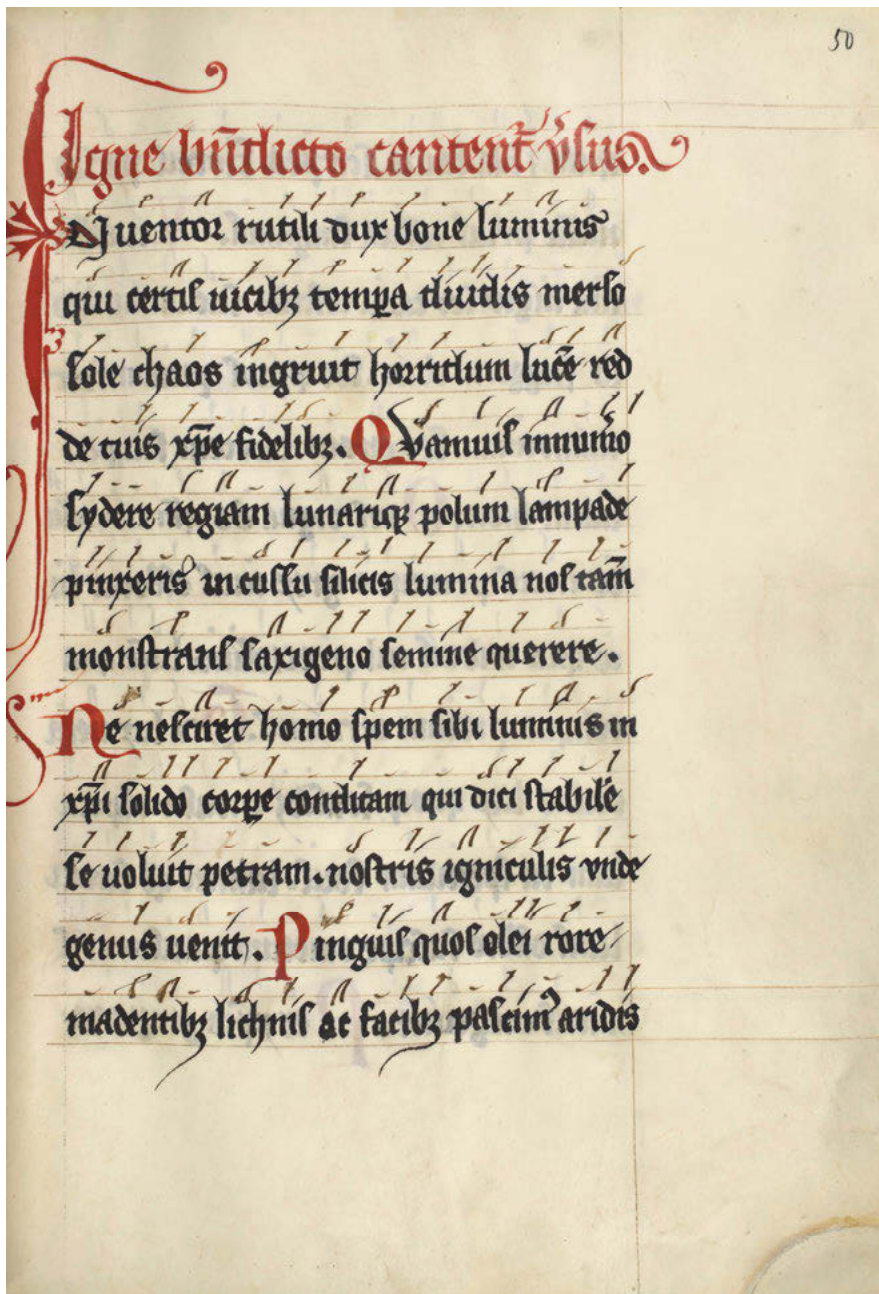 50
Igne bn̄dicto cantent᷑ v̾sus.
INuentor rutili dux bone luminis
qui certis uicibꝫ temꝑa diuidis merso
sole chaos ingruit horridum lucē red
de tuis xp̄e fidelibꝫ. Quamuis innum̾o
sydere regiam lunariqꝫ polum lampade
pinxeris incussu silicis lumina nos tam̄
monstrans saxigeno semine querere.
Ne nesciret homo spem sibi luminis in
xp̄i solido corꝑe conditam qui dici stabilē
se uoluit petram. nostris igniculis vnde
genus uenit. Pinguis quos olei rore
madentibꝫ lichnis ac facibꝫ pascimꝰ aridis